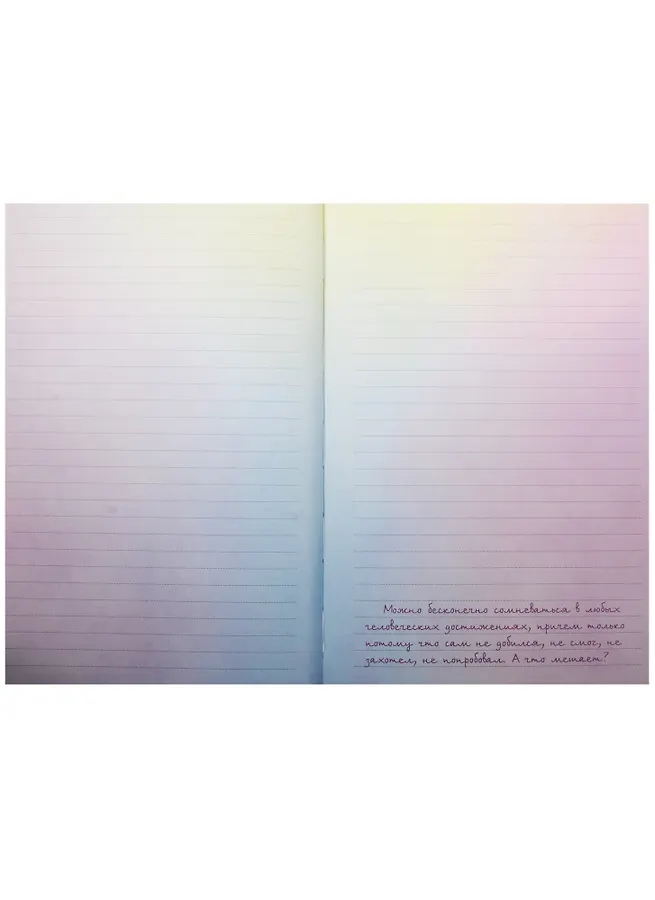 Можно бесконечно сомневаться в любых
человеческих достижениях, причем только
потому что сам не добился, не смог, не
захотел, не попробовал. А что мешает?